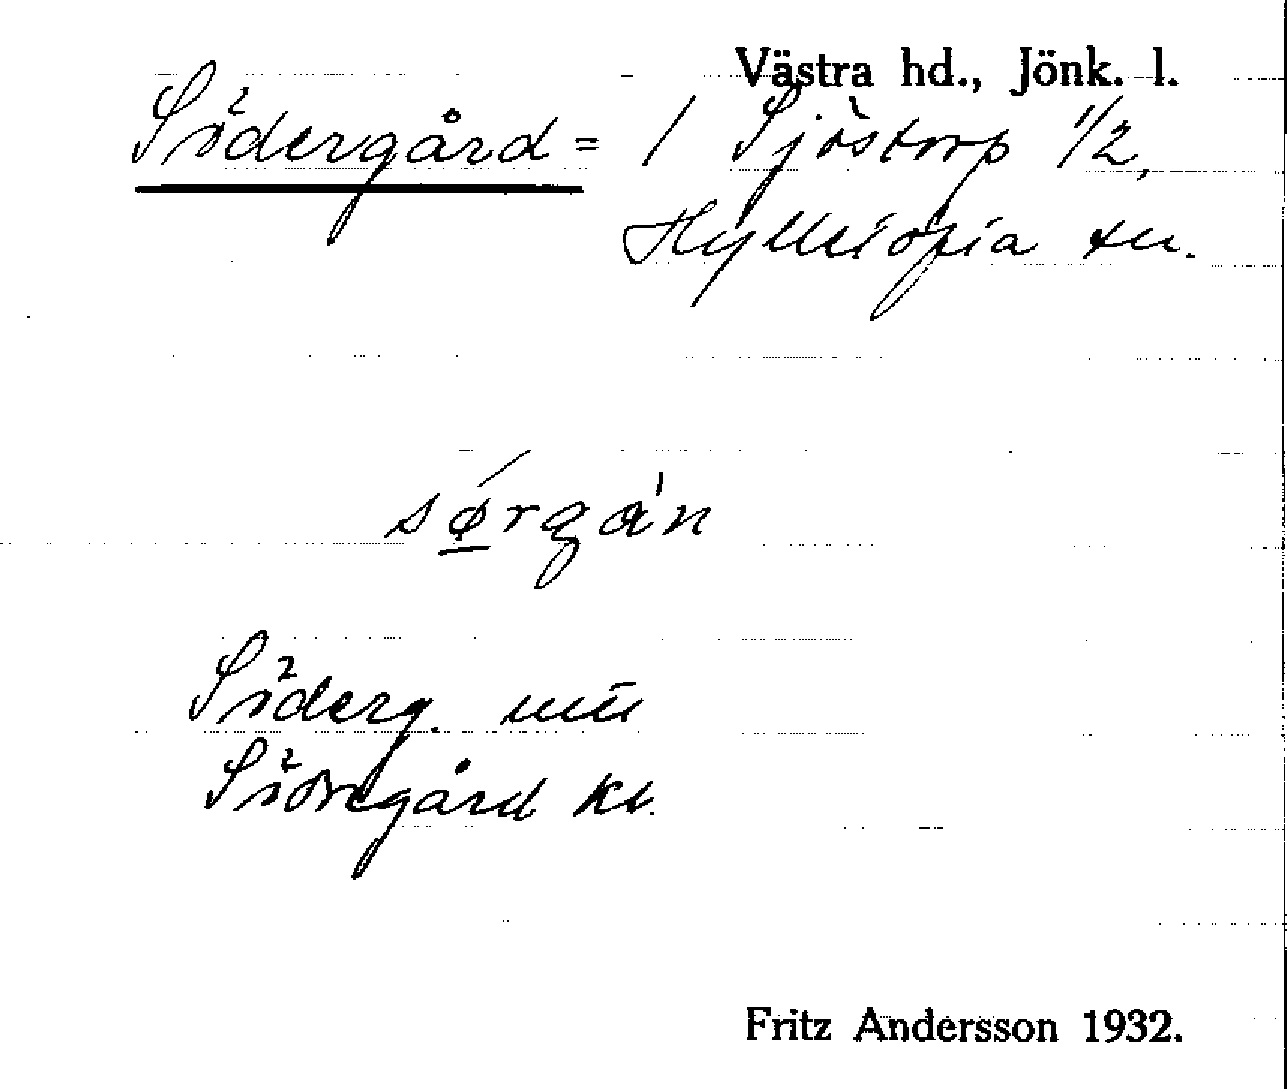 Västra hd., Jönk. l.
Södergård = / Sjöstorp 1/2,
Hylletofta sn.
sørgán
Söderg.
Södregård kt.
Fritz Andersson 1932.